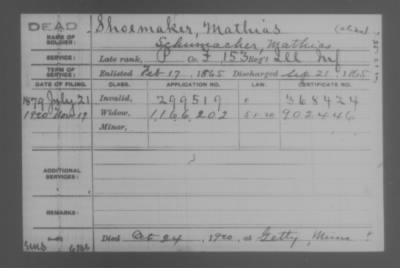 DEAD
NAME OF SOLDIER: Shoemaker, Mathias (alias)
Schumacher, Mathias
SERVICE: Late rank, P Co. F 153 Reg't Ill Inf
TERM OF SERVICE: Enlisted Feb 17, 1865 Discharged Sep 21, 1865
DATE OF FILING. CLASS. APPLICATION NO. LAW. CERTIFICATE NO.
1879 July 21 Invalid, 299519 368424
1920 Nov 19 Widow, 1,166,202 902446
Minor,
ADDITIONAL SERVICES:
REMARKS:
Died Oct 24, 1920, at Getty, Minn